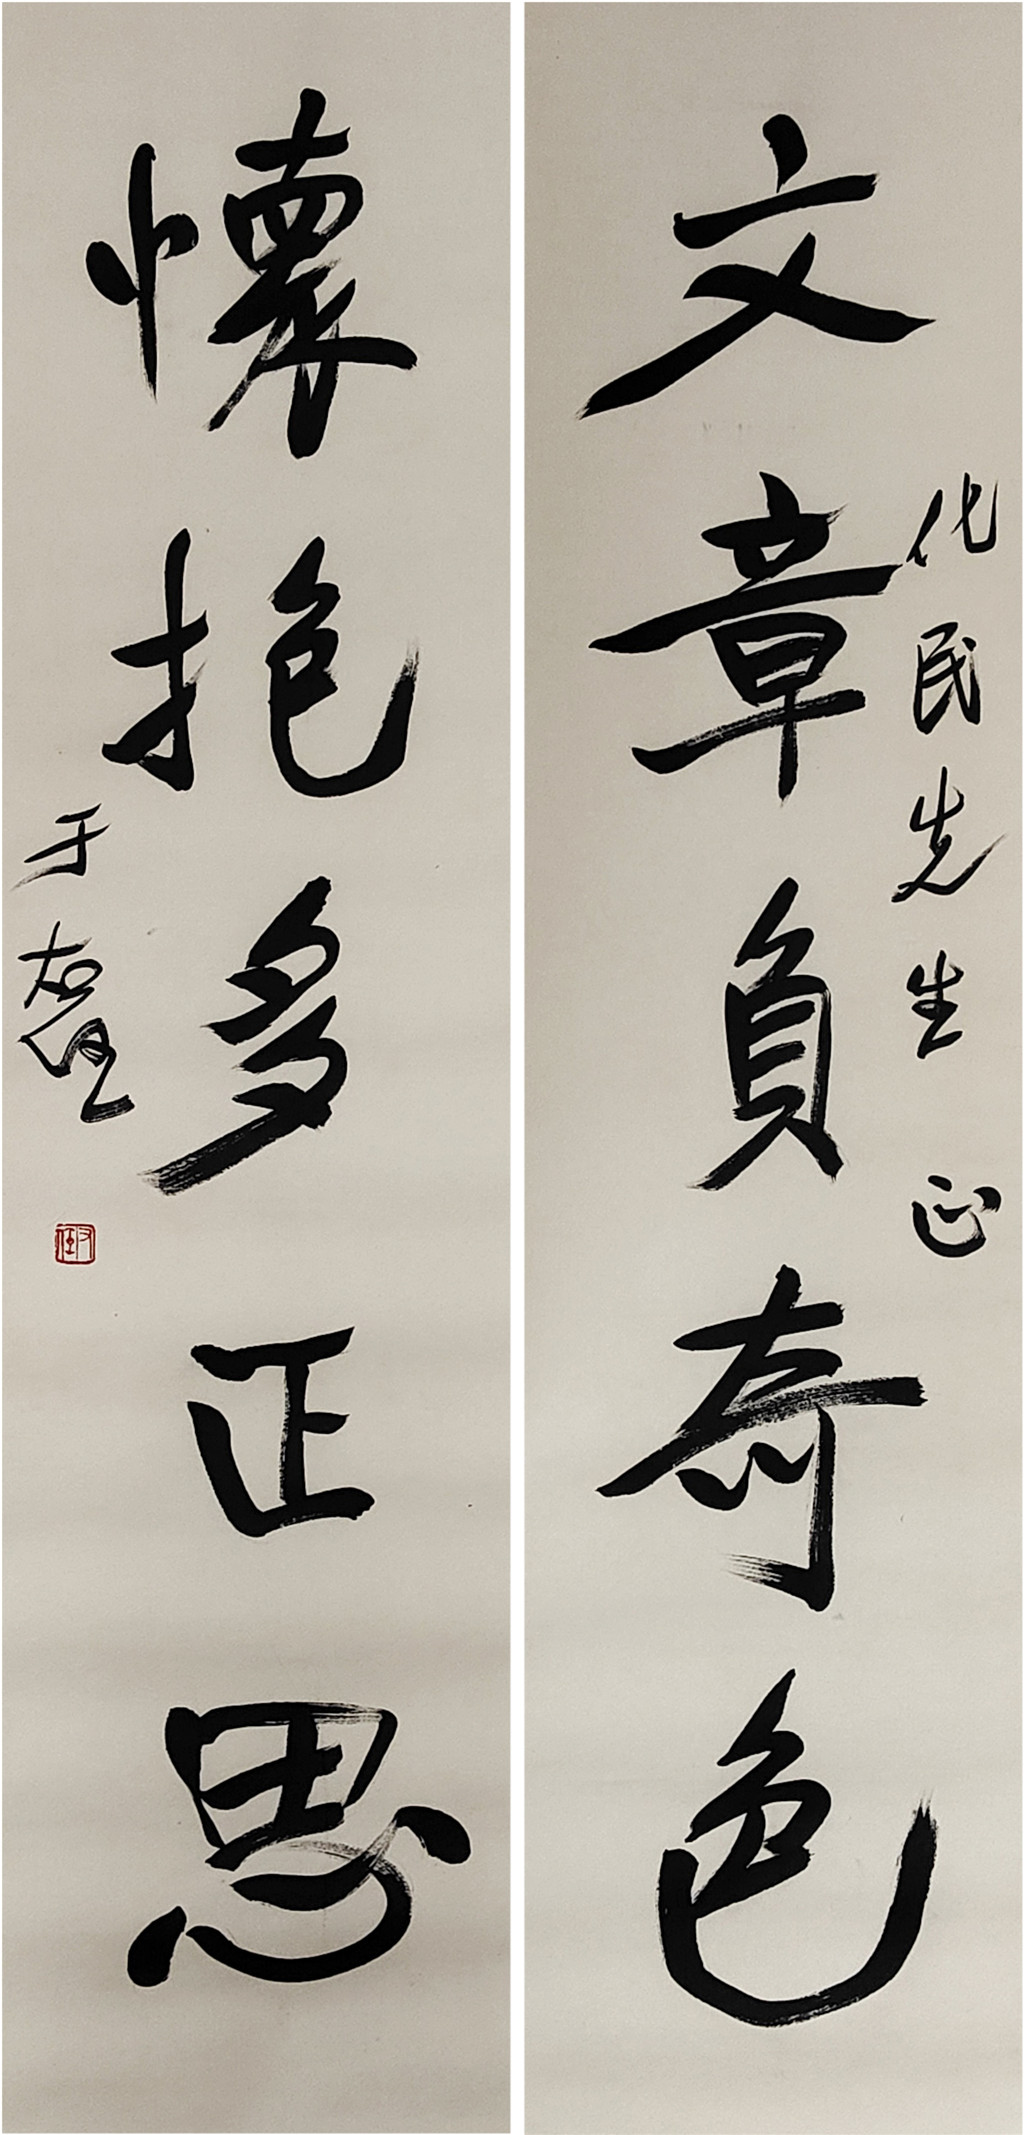 文章負奇色
化民先生 正
懷抱多正思
于右任
右任